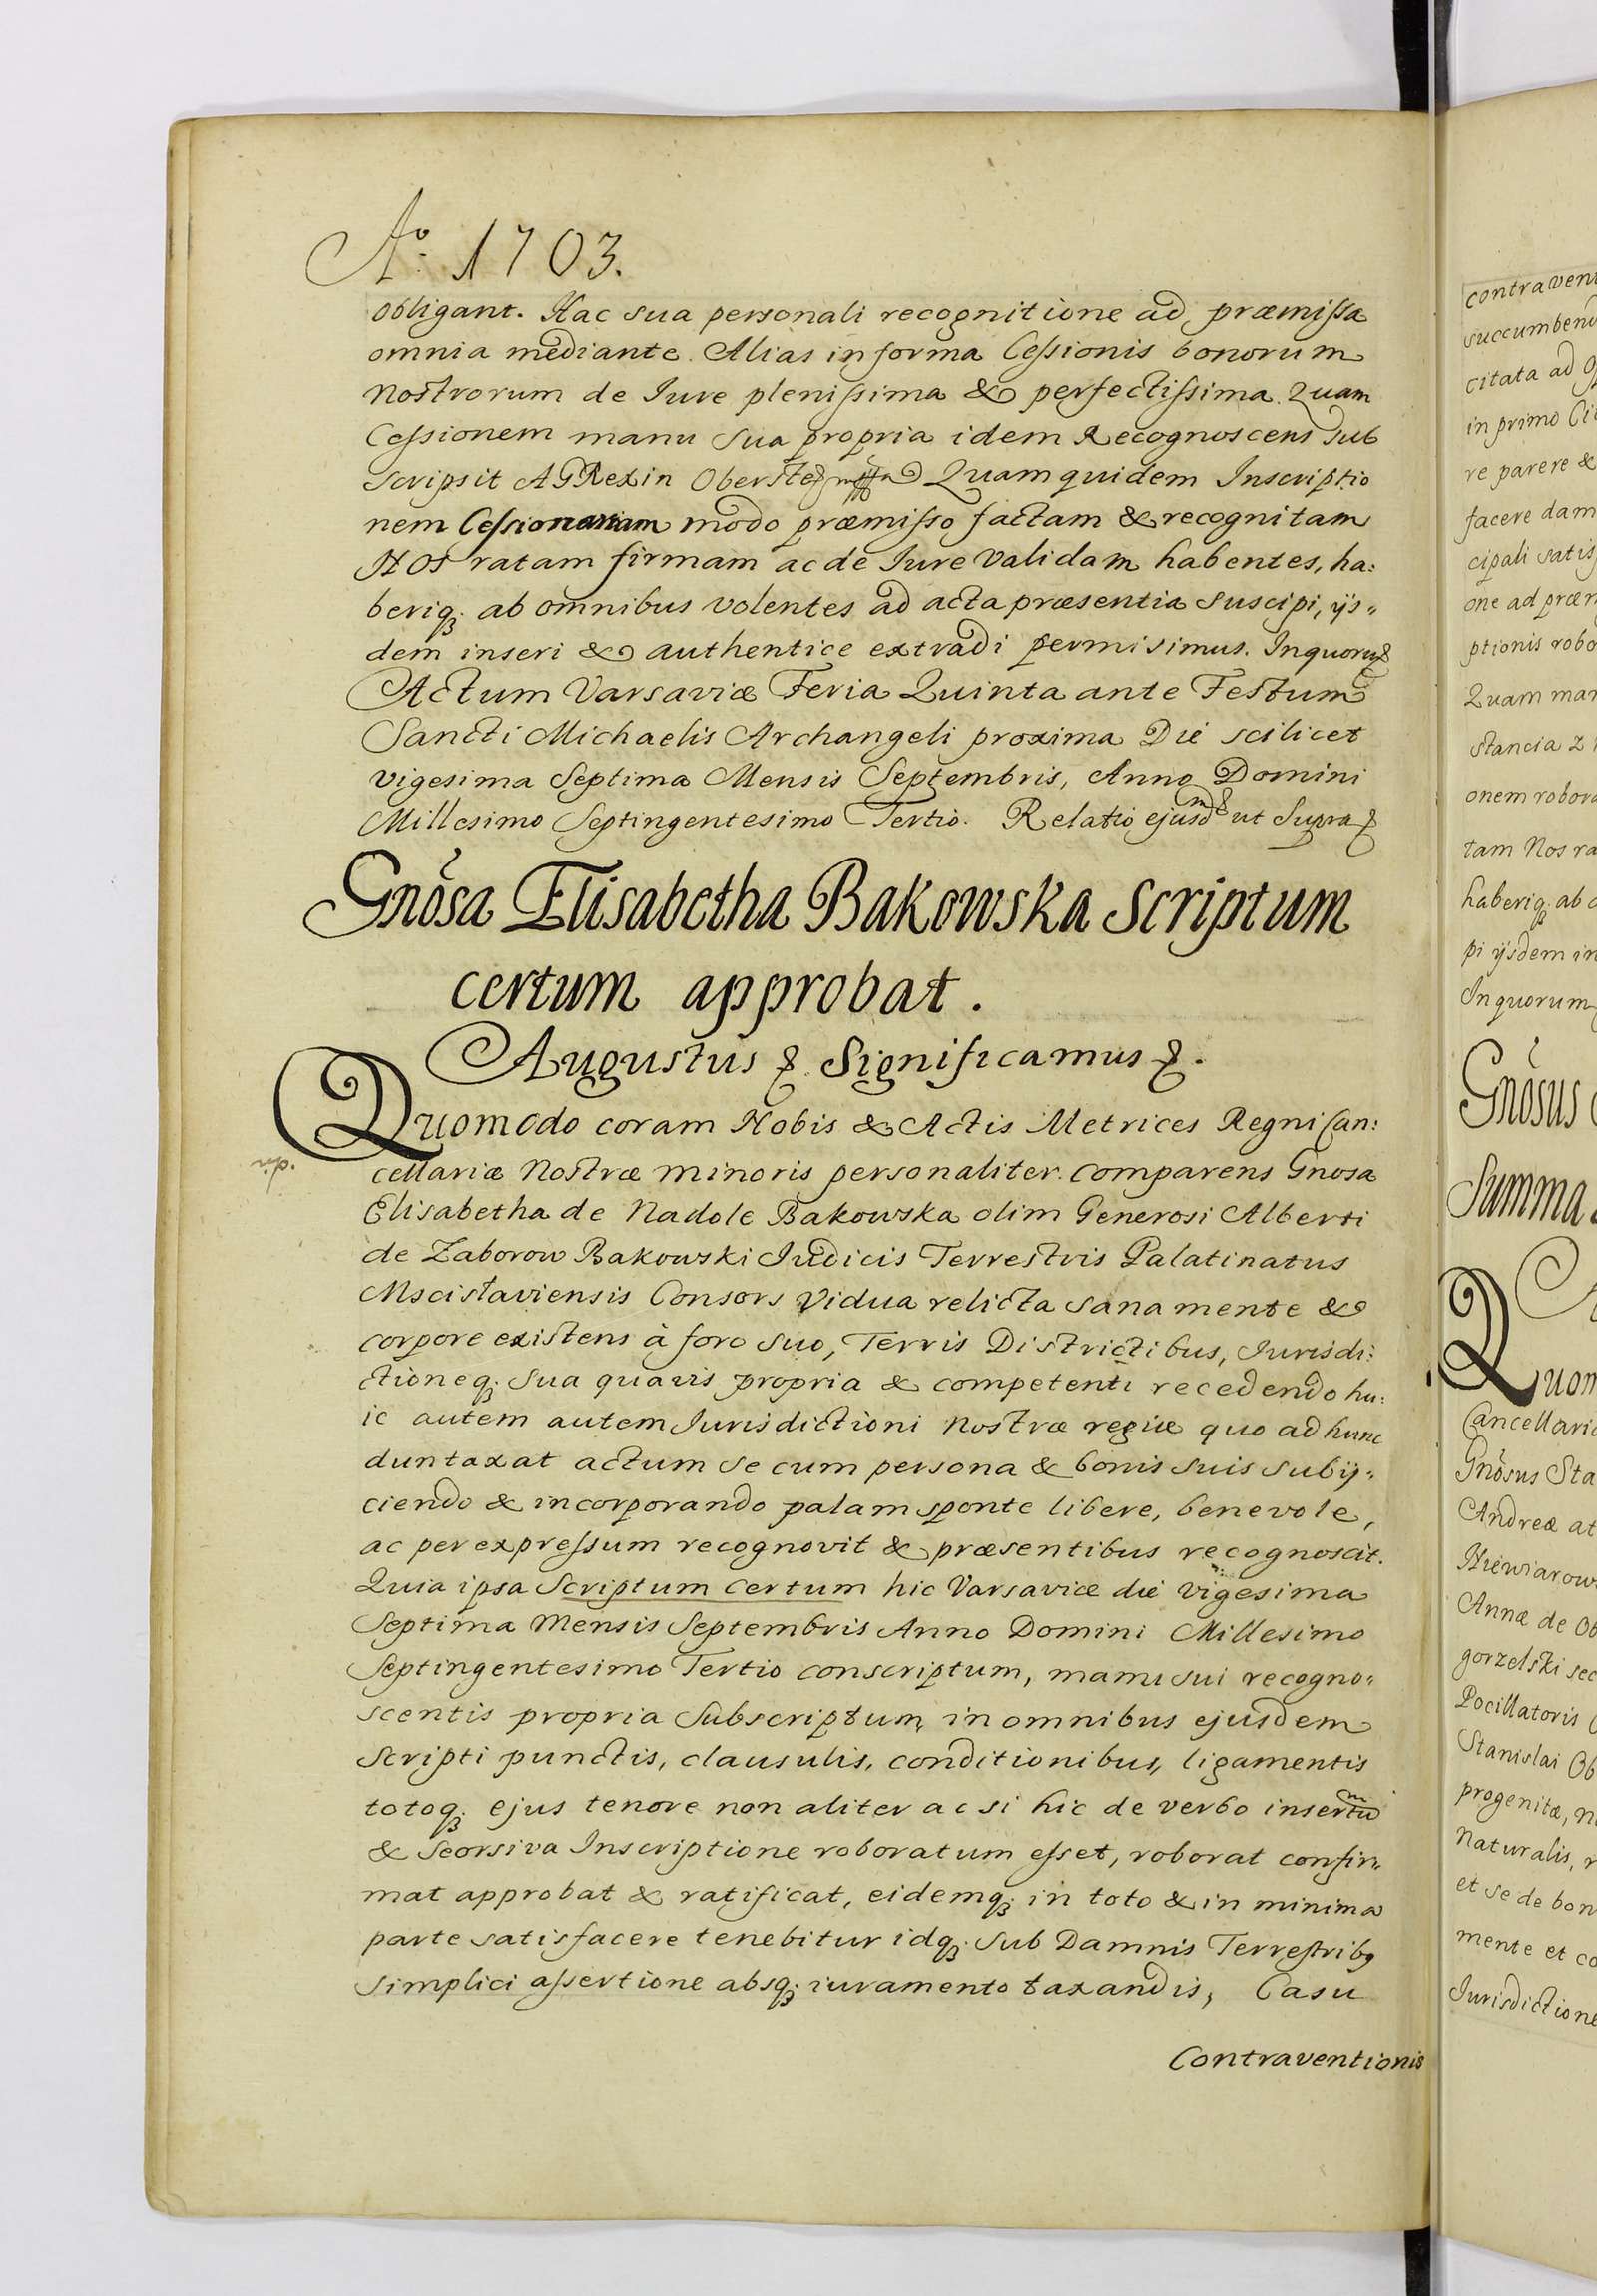 Aº 1703.
obligant. Hac sua personali recognitione ad præmissa
omnia mediante. Alias in forma Cessionis bonorum
Nostrorum de Iure plenissima & perfectissima. Quam
Cessionem manu sua propria idem Recognoscens sub
scripsit AGRexin Oberste Quam quidem Inscriptio
nem Cessionariam modo præmisso factam & recognitam
NOS ratam firmam ac de Iure Validam habentes, ha:
beriq; ab omnibus volentes ad acta præsentia suscipi, ijs„
dem inseri & authentice extradi permisimus. Inquorũ
Actum Varsaviæ Feria Quinta ante Festum
Sancti Michaelis Archangeli proxima Die scilicet
vigesima Septima Mensis Septembris, Anno Domini
Millesimo Septingentesimo Tertio. Relatio ejusdm ut Supra
Gnõsa Elisabetha Bakowska Scriptum
certum approbat.
Augustus Significamus.
Quomodo coram Nobis & Actis Metrices Regni Can:
cellariæ Nostræ minoris personaliter comparens Gnosa
Elisabetha de Nadole Bakowska olim Generosi Alberti
de Zaborow Bakowski Judicis Terrestris Palatinatus
Mscislaviensis Consors Vidua relicta sana mente &
corpore existens à foro suo, Terris Districtibus, Jurisdi:
ctioneq; sua quavis propria & competenti recedendo hu:
ic autem autem Jurisdictioni Nostræ regiæ quo ad hunc
duntaxat actum se cum persona & bonis suis subij„
ciendo & incorporando palam sponte libere, benevole,
ac per expressum recognovit & præsentibus recognoscit.
Quia ipsa Scriptum certum hic Varsaviæ die vigesima
Septima Mensis Septembris Anno Domini Millesimo
Septingentesimo Tertio conscriptum, manu sui recogno„
scentis propria Subscriptum, in omnibus ejusdem
Scripti punctis, clausulis, conditionibus, ligamentis
totoq; ejus tenore non aliter ac si hic de verbo insertum
& Seorsiva Inscriptione roboratum esset, roborat confir„
mat approbat & ratificat, eidemq; in toto & in minima
parte satisfacere tenebitur idq; sub Damnis Terrestribg
simplici assertione absq; iuramento taxandis, Casu
Contraventionis
contraven
succumben
citata ad
in primo
re parere &
facere dam
cipali satis
one ad præm
ptionis robo
Quam man
stancia z
onem robora
tam Nos ra
haberiq; ab
pi ijsdem in
Inquorum
Gnõsus
Summa
Quom
Cancellari
Gnõsus Sta
Andreæ at
Niewiarow
Annæ de Ob
gorzelski sec
Pocillatoris
Stanislai Ob
progenitæ, n
Naturalis, r
et se de bon
mente et co
Jurisdictione